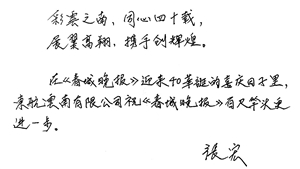 彩雲之南，同心四十載，
展翼高翔，携手创辉煌。
在《春城晚报》迎来40華誕的喜庆日子里，
東航雲南有限公司祝《春城晚报》百尺竿头更
进一步。
張宏